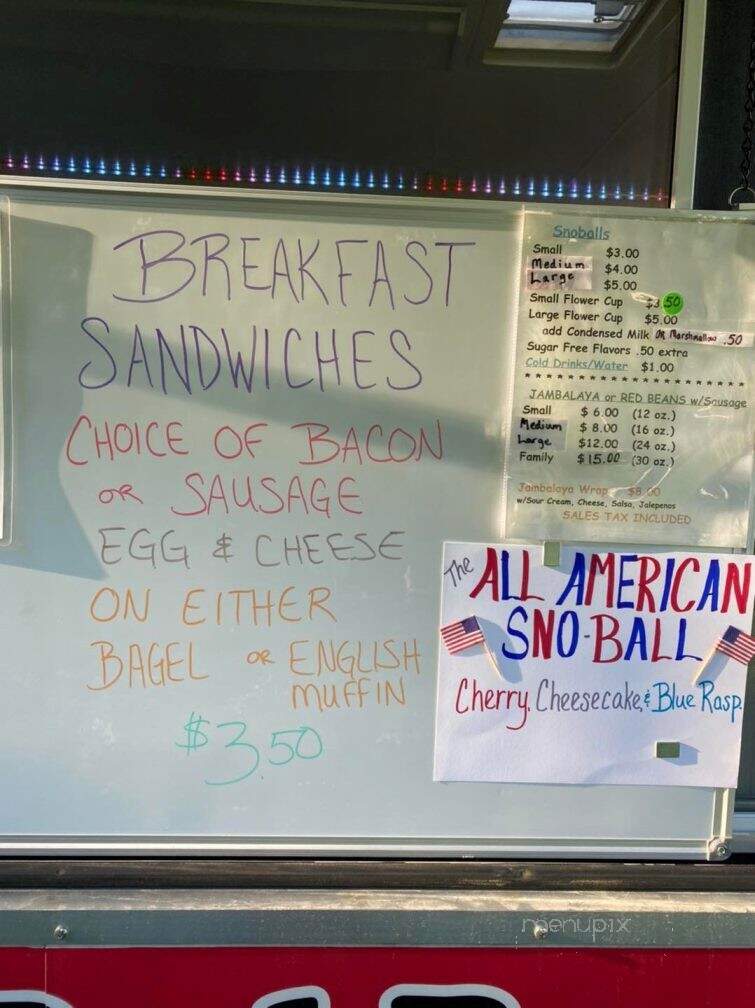 BREAKFAST
SANDWICHES
CHOICE OF BACON
OR SAUSAGE
EGG & CHEESE
ON EITHER
BAGEL OR ENGLISH
MUFFIN
$3.50
Snoballs
Small $3.00
Medium $4.00
Large $5.00
Small Flower Cup $3.50
Large Flower Cup $5.00
add Condensed Milk OR Marshmallow .50
Sugar Free Flavors .50 extra
Cold Drinks/Water $1.00
* * * * * * * * * * * * * * * * * * * * * *
JAMBALAYA or RED BEANS w/Sausage
Small $ 6.00 (12 oz.)
Medium $ 8.00 (16 oz.)
Large $12.00 (24 oz.)
Family $15.00 (30 oz.)
Jambalaya Wrap $8.00
w/Sour Cream, Cheese, Salsa, Jalepenos
SALES TAX INCLUDED
The ALL AMERICAN
SNO-BALL
Cherry, Cheesecake, & Blue Rasp.
menupix